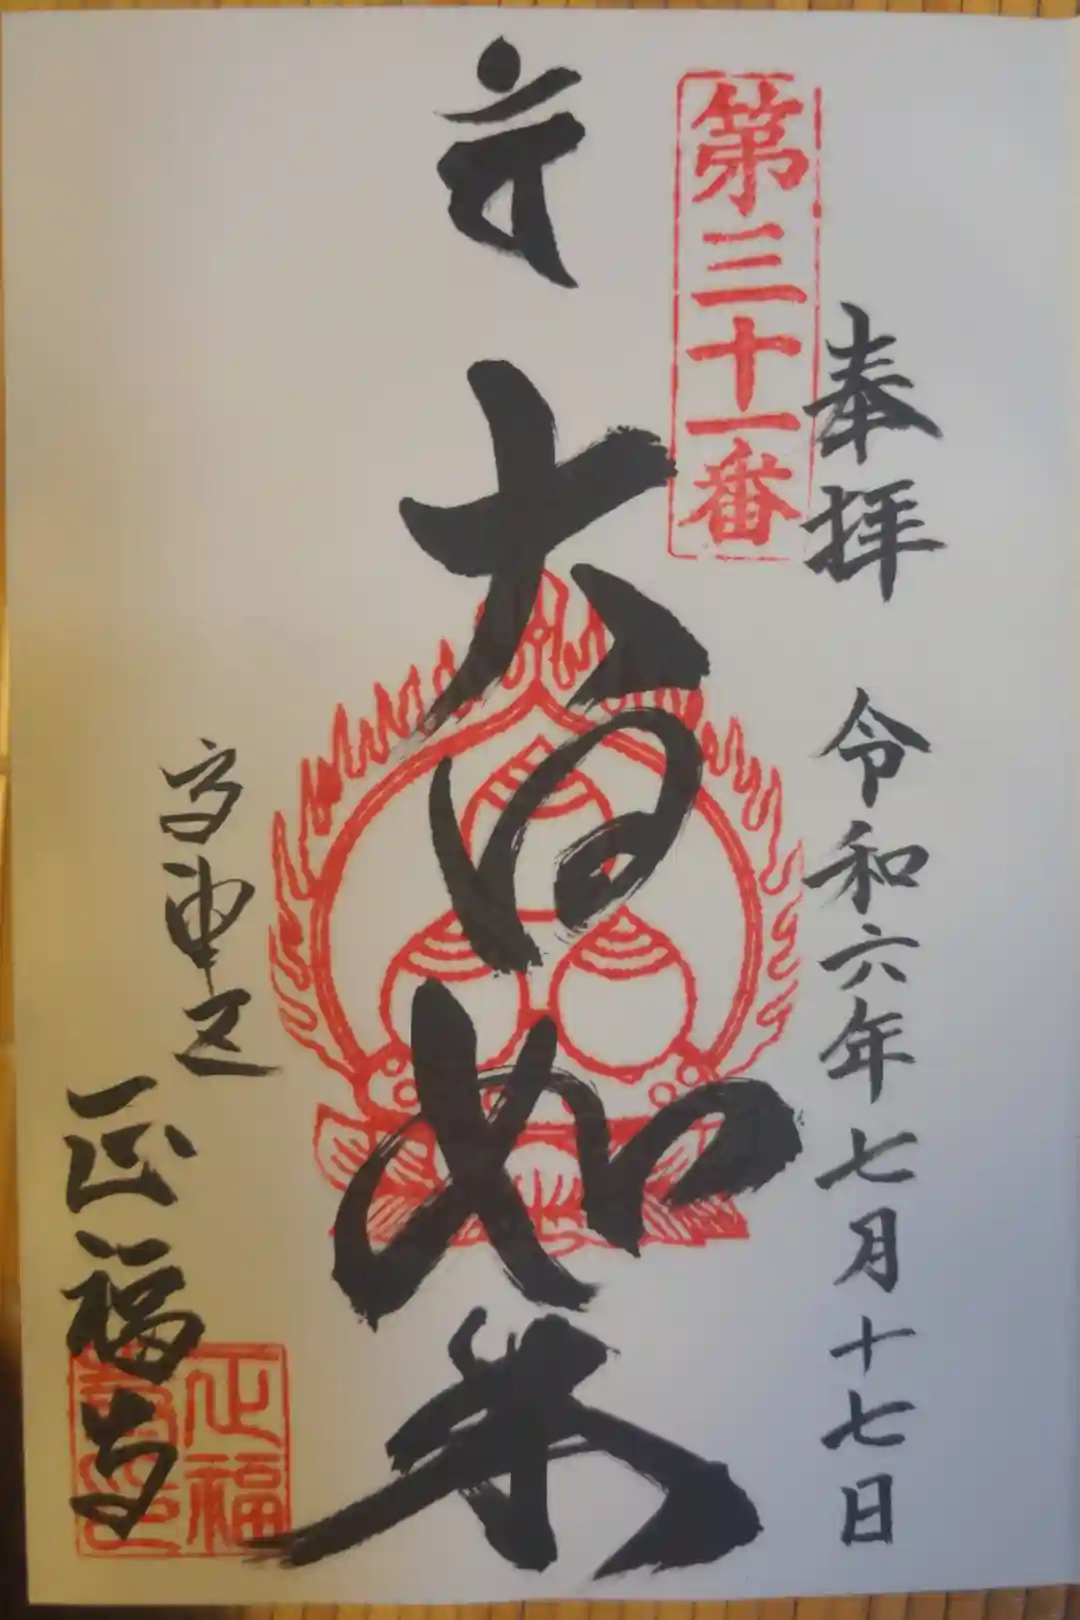 奉拝 令和六年七月十七日
第三十一番
大日如来
高津区
正福寺
正福
寺印